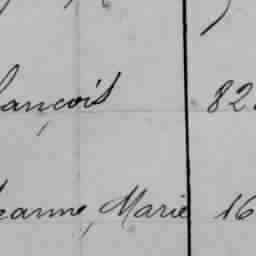 ançois 82
eanne, Marie 16